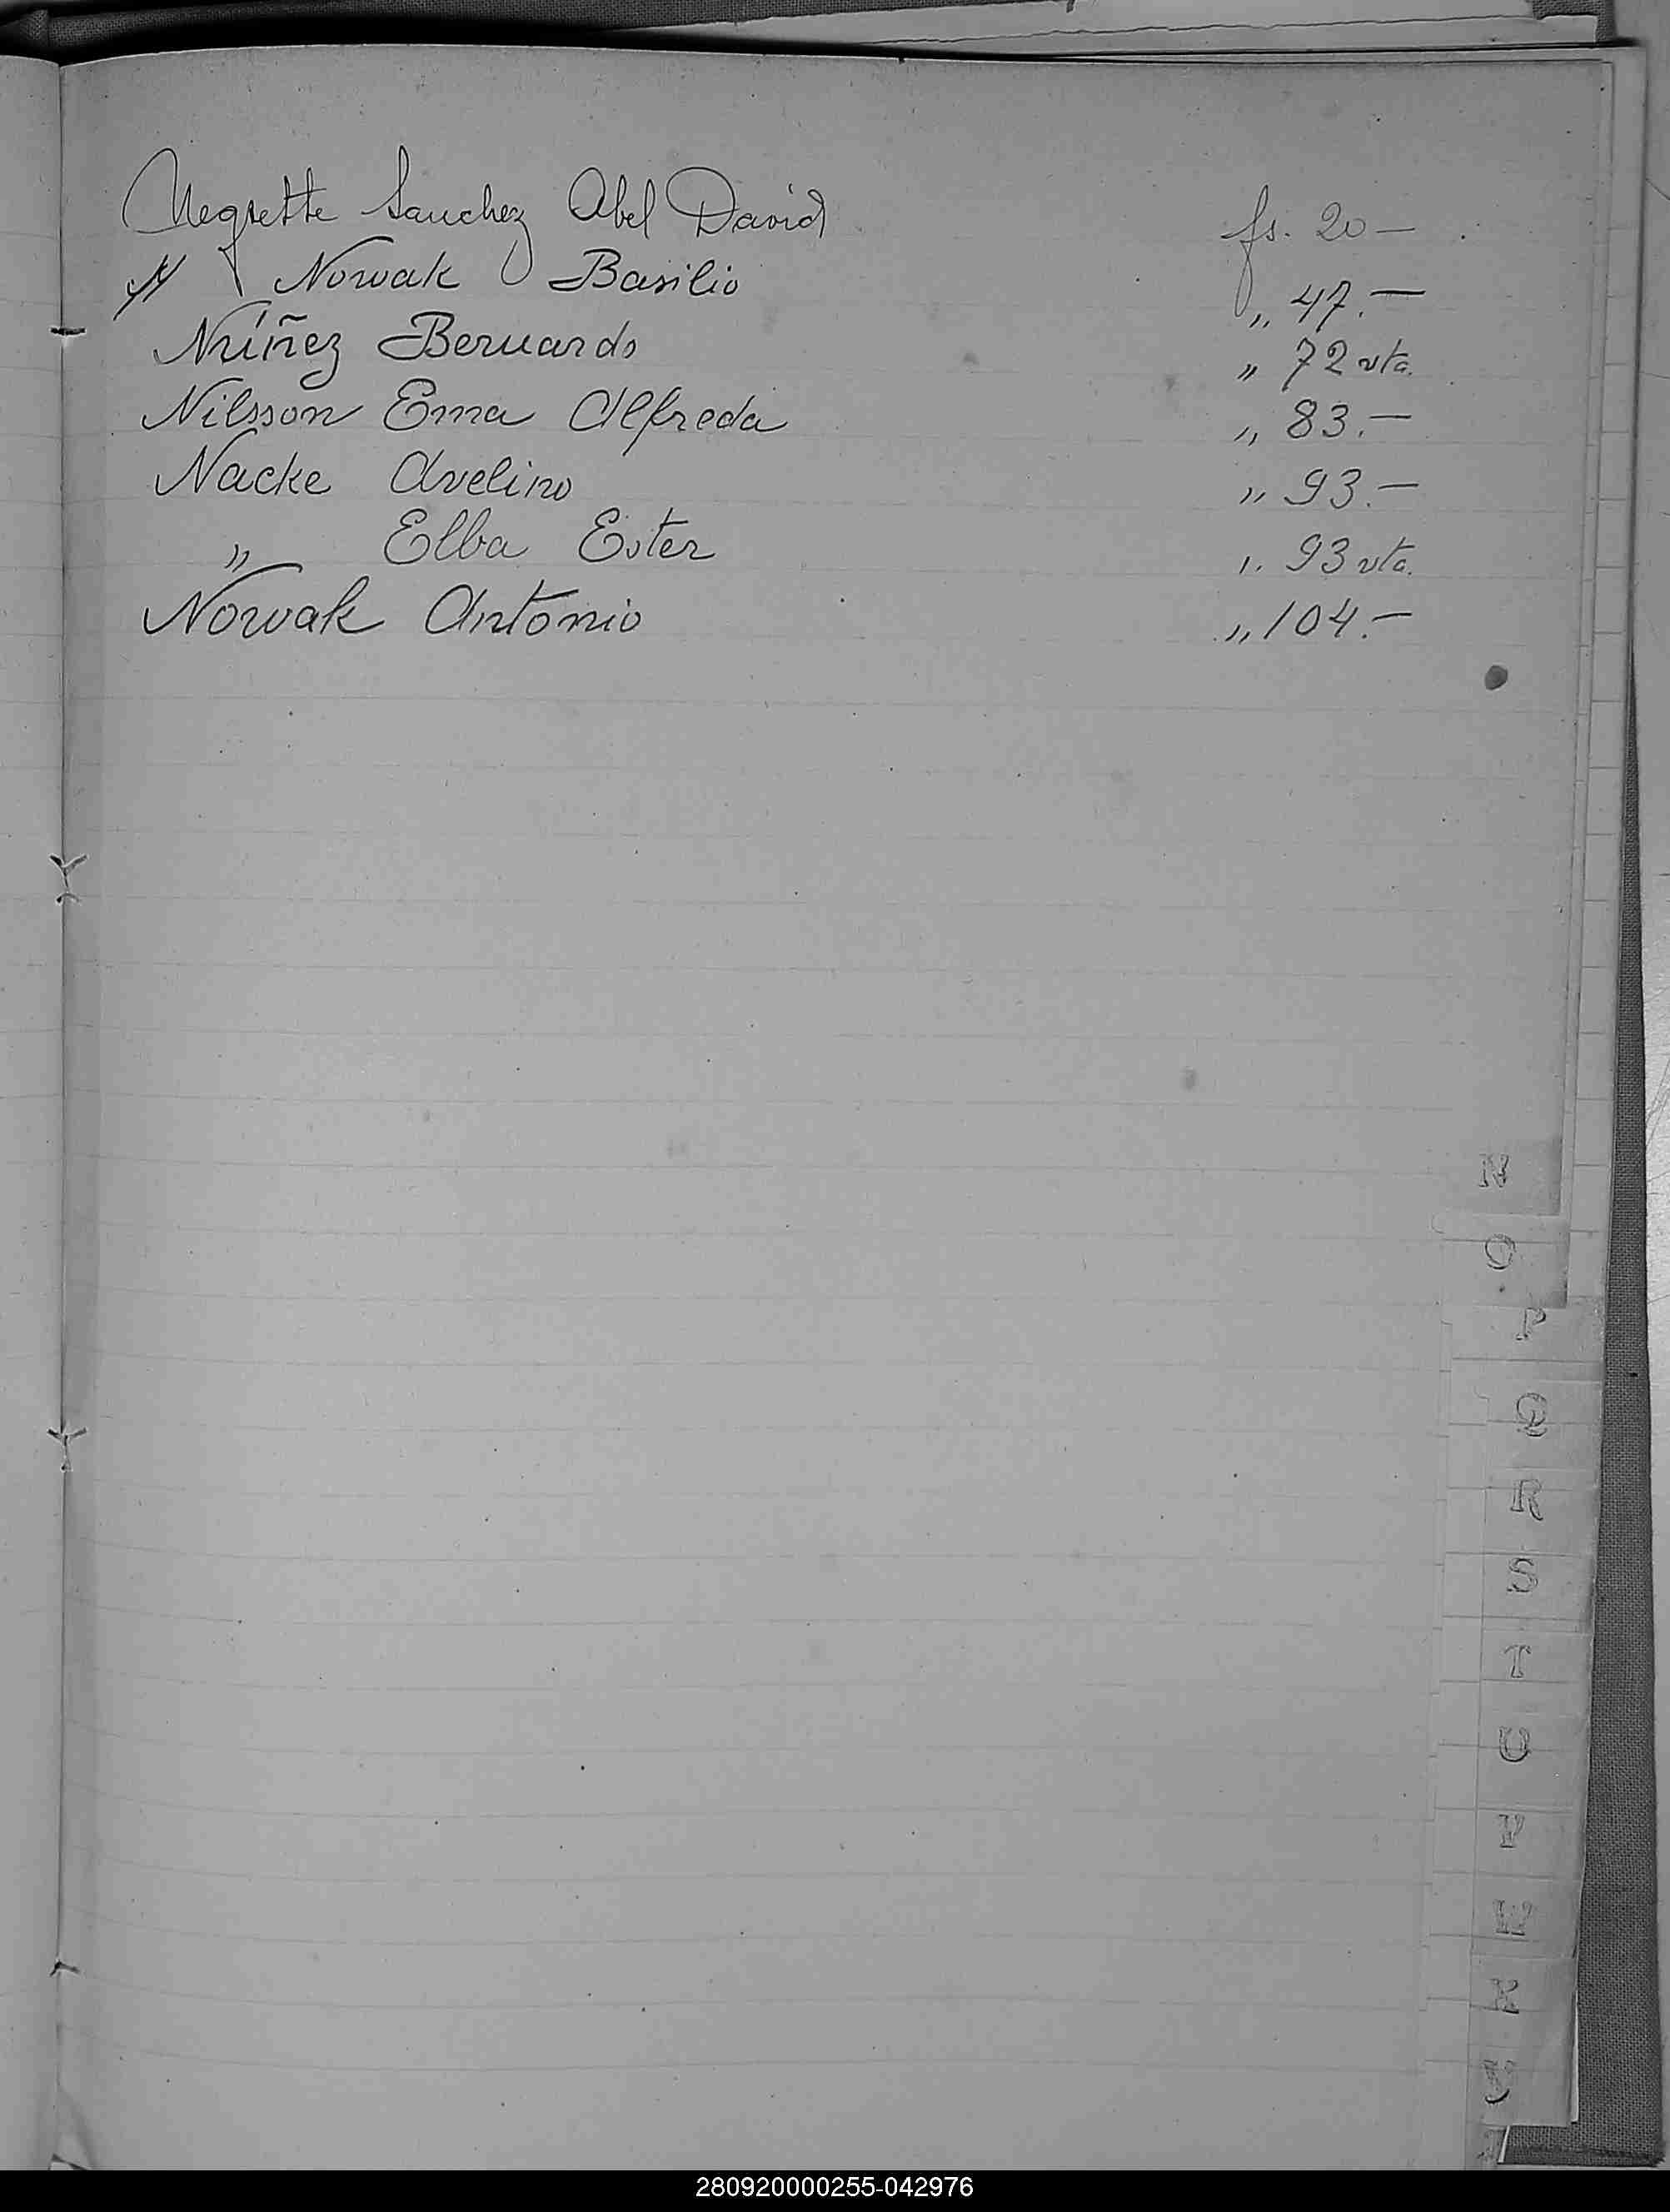 Negrette Sanchez Abel David fs. 20 —
Nowak Basilio „ 47.—
Núñez Bernardo „ 72 vta.
Nilsson Ema Alfreda „ 83.—
Nacke Avelino „ 93.—
„ Elba Ester „ 93 vta.
Nowak Antonio „ 104.—
N
O
P
Q
R
S
T
U
V
W
X
Y
280920000255-042976